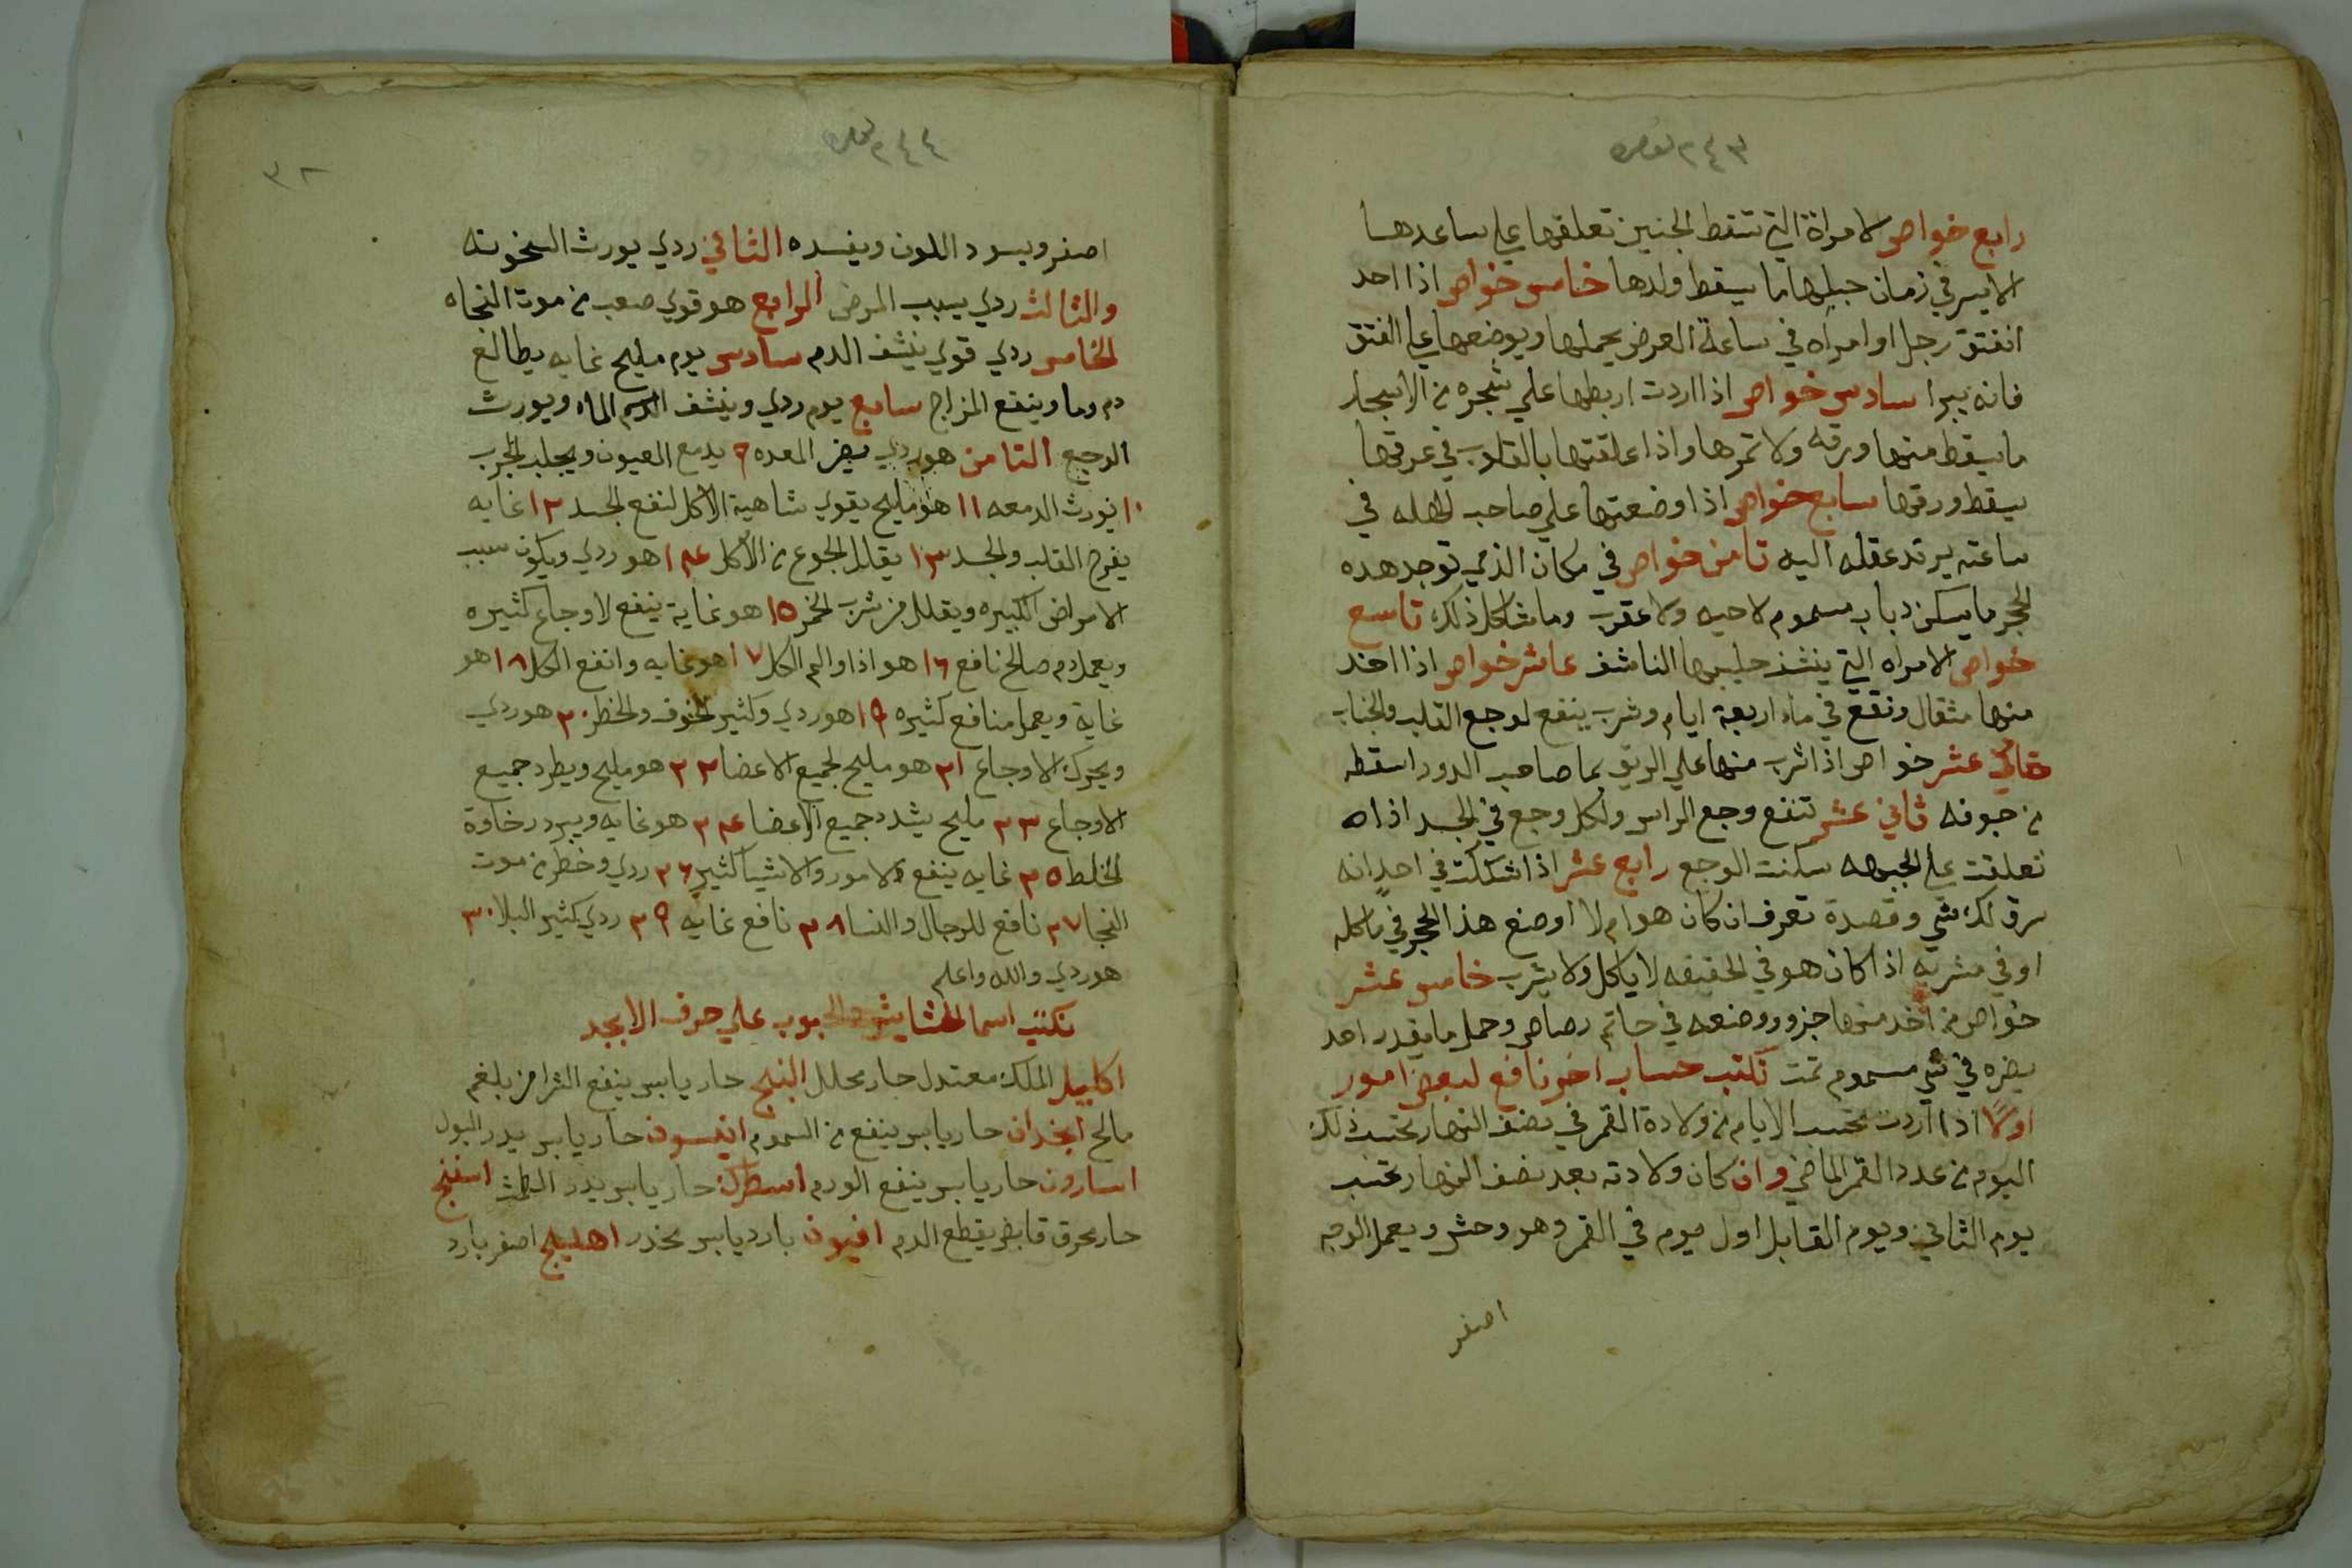 ٢٤٣
رابع خواص لامراة التي تسقط الجنين تعلقها علي ساعدها
الايسر في زمان حبلها ما يسقط ولدها خامس خواص اذا احد
انفتق رجل او امراه في ساعة العرض يحملها ويوضعها علي الفتق
فانه يبرا سادس خواص اذا اردت اربطها علي شجره من الاشجار
ما يسقط منها ورقه ولا ثمرها واذا علقتها بالقلوب في عرقها
يسقط ورقها سابع خواص اذا وضعتها علي صاحب في
ساعته يرتد عقله اليه ثامن خواص في مكان الذي توجد هده
الحجر ما يسكن دباب مسموم لا حيه ولا عقرب وما شاكل ذلك تاسع
خواص الامراه التي ينشف حليبها الناشف عاشر خواص اذا اخد
منها مثقال ونقع في ماء اربعة ايام وشرب ينفع لوجع القلب والجناب
عشر خواص اذا شرب منها علي الريق بما صاحب الدود اسقطه
من جوفه ثاني عشر تنفع وجع الراس ولكل وجع في الجسد اذا
تعلقت علي الجبهه سكنت الوجع رابع عشر اذا شككت في احد انه
سرق لك شي وقصدة تعرف ان كان هو ام لا اوضع هذا الحجر في ماكله
او في مشربه اذا كان هو في الحقيقه لا ياكل ولا يشرب خامس عشر
خواص من اخد منها جزو ووضعه في خاتم رصاص وحمل ما يقدر احد
يضره في شي مسموم تمت نكتب حساب اخر نافع لبعض امور
اولًا اذا اردت تحتسب الايام من ولادة القمر في نصف النهار تحتسب ذلك
اليوم من عدد القمر الماضي وان كان ولادته بعد نصف النهار تحتسب
يوم الثاني ويوم القابل اول ميوم في القمر وهو وحش ويعمل الوجه
اصفر
٢٤٤
٣٢
اصفر ويسود اللون ويفسده الثاني ردي يورث السخونه
والثالث ردي يسبب المرض الرابع هو قوي صعب من موت النجاه
الخامس ردي قوي ينشف الدم سادس يوم مليح غايه يطالع
دم وما وينفع المزاج سابع يوم ردي وينشف الدم الماء ويورث
الوجع الثامن هو ردي يضر المعده ٩ يدمع العيون ويجلب الجرب
١٠ يورث الدمعه ١١ هو مليح يقوي شاهية الاكل لنفع الجسد ١٢ غايه
يفرح القلب والجسد ١٣ يقلل الجوع من الاكل ١٤ هو ردي ويكون سبب
الامراض الكبيره ويقلل من شرب الخمر ١٥ هو غاية ينفع لاوجاع كثيره
ويعمل دم صالح نافع ١٦ هو اذا والم الكل ١٧ هو غايه وانفع الكل ١٨ هو
غاية ويعمل منافع كثيره ١٩ هو ردي وكثير الخوف والخطر ٢٠ هو ردي
ويحرك الاوجاع ٢١ هو مليح لجميع الاعضا ٢٢ هو مليح ويطرد جميع
الاوجاع ٢٣ مليح يشدد جميع الاعضا ٢٤ هو غايه ويبرد رخاوة
الخلط ٢٥ غايه ينفع الامور والاشيا كثير ٢٦ ردي وخطر من موت
النجا ٢٧ نافع للرجال والنسا ٢٨ نافع غايه ٢٩ ردي كثير البلا ٣٠
هو ردي والله واعلم
نكتب اسما الحشايش والحبوب علي حرف الابجد
اكليل الملك معتدل حار محلل البنج حار يابس ينفع الشرا من بلغم
مالح انجدان حار يابس ينفع من السموم انيسون حار يابس يدر البول
اسارون حار يابس ينفع الورم اسطرك حار يابس يدر الطمث اسفنج
حار محرق قابض يقطع الدم افيون بارد يابس مخدر اهليلج اصفر بارد